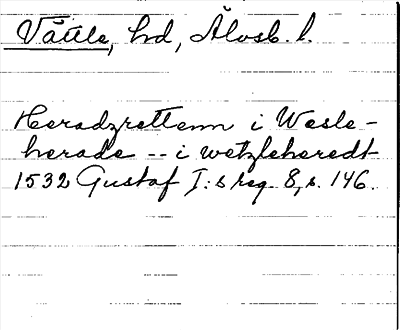 Vättle, hd, Älvsb. l.
Heradzrettenn i Wesle-
herade -- i wetzleheredt
1532 Gustaf I:s reg. 8, s. 146.